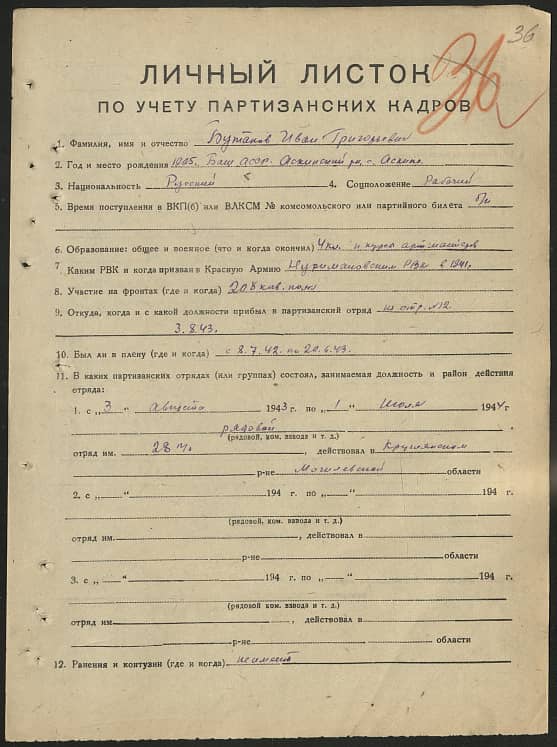 36
36
ЛИЧНЫЙ ЛИСТОК
ПО УЧЕТУ ПАРТИЗАНСКИХ КАДРОВ
1. Фамилия, имя и отчество Бутаков Иван Григорьевич
2. Год и место рождения 1905. Баш АССР. Аскинский рн, с. Аскино.
3. Национальность Русский 4. Соцположение Рабочий
5. Время поступления в ВКП(б) или ВЛКСМ № комсомольского или партийного билета б/п
6. Образование: общее и военное (что и когда окончил) 4 кл. и курсы артмастеров
7. Каким РВК и когда призван в Красную Армию Нуримановским РВК в 1941г.
8. Участие на фронтах (где и когда) 208 кав. полк
9. Откуда, когда и с какой должности прибыл в партизанский отряд из отр. №12
3.8.43.
10. Был ли в плену (где и когда) с 8.7.42. по 20.6.43.
11. В каких партизанских отрядах (или группах) состоял, занимаемая должность и район действия
отряда:
1. с „ 3 “ августа 1943 г. по „ 1 “ июля 1944 г
рядовой
(рядовой, ком. взвода и т. д.)
отряд им. 28м. , действовал в Круглянском
р-не Могилевской области
2. с „ “ 194 г. по „ “ 194 г.
(рядовой, ком. взвода и т. д.)
отряд им. , действовал в
р-не области
3. с „ “ 194 г. по „ “ 194 г.
(рядовой, ком. взвода и т. д.)
отряд им. , действовал в
р-не области
12. Ранения и контузии (где и когда) не имеет